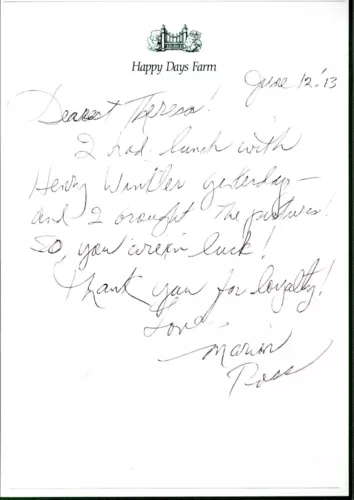 Happy Days Farm
June 12.'13
Dearest Theresa!
I had lunch with
Henry Winkler yesterday —
and I brought the pictures!
So, you were in luck!
Thank you for loyalty!
Love
Marion
Ross